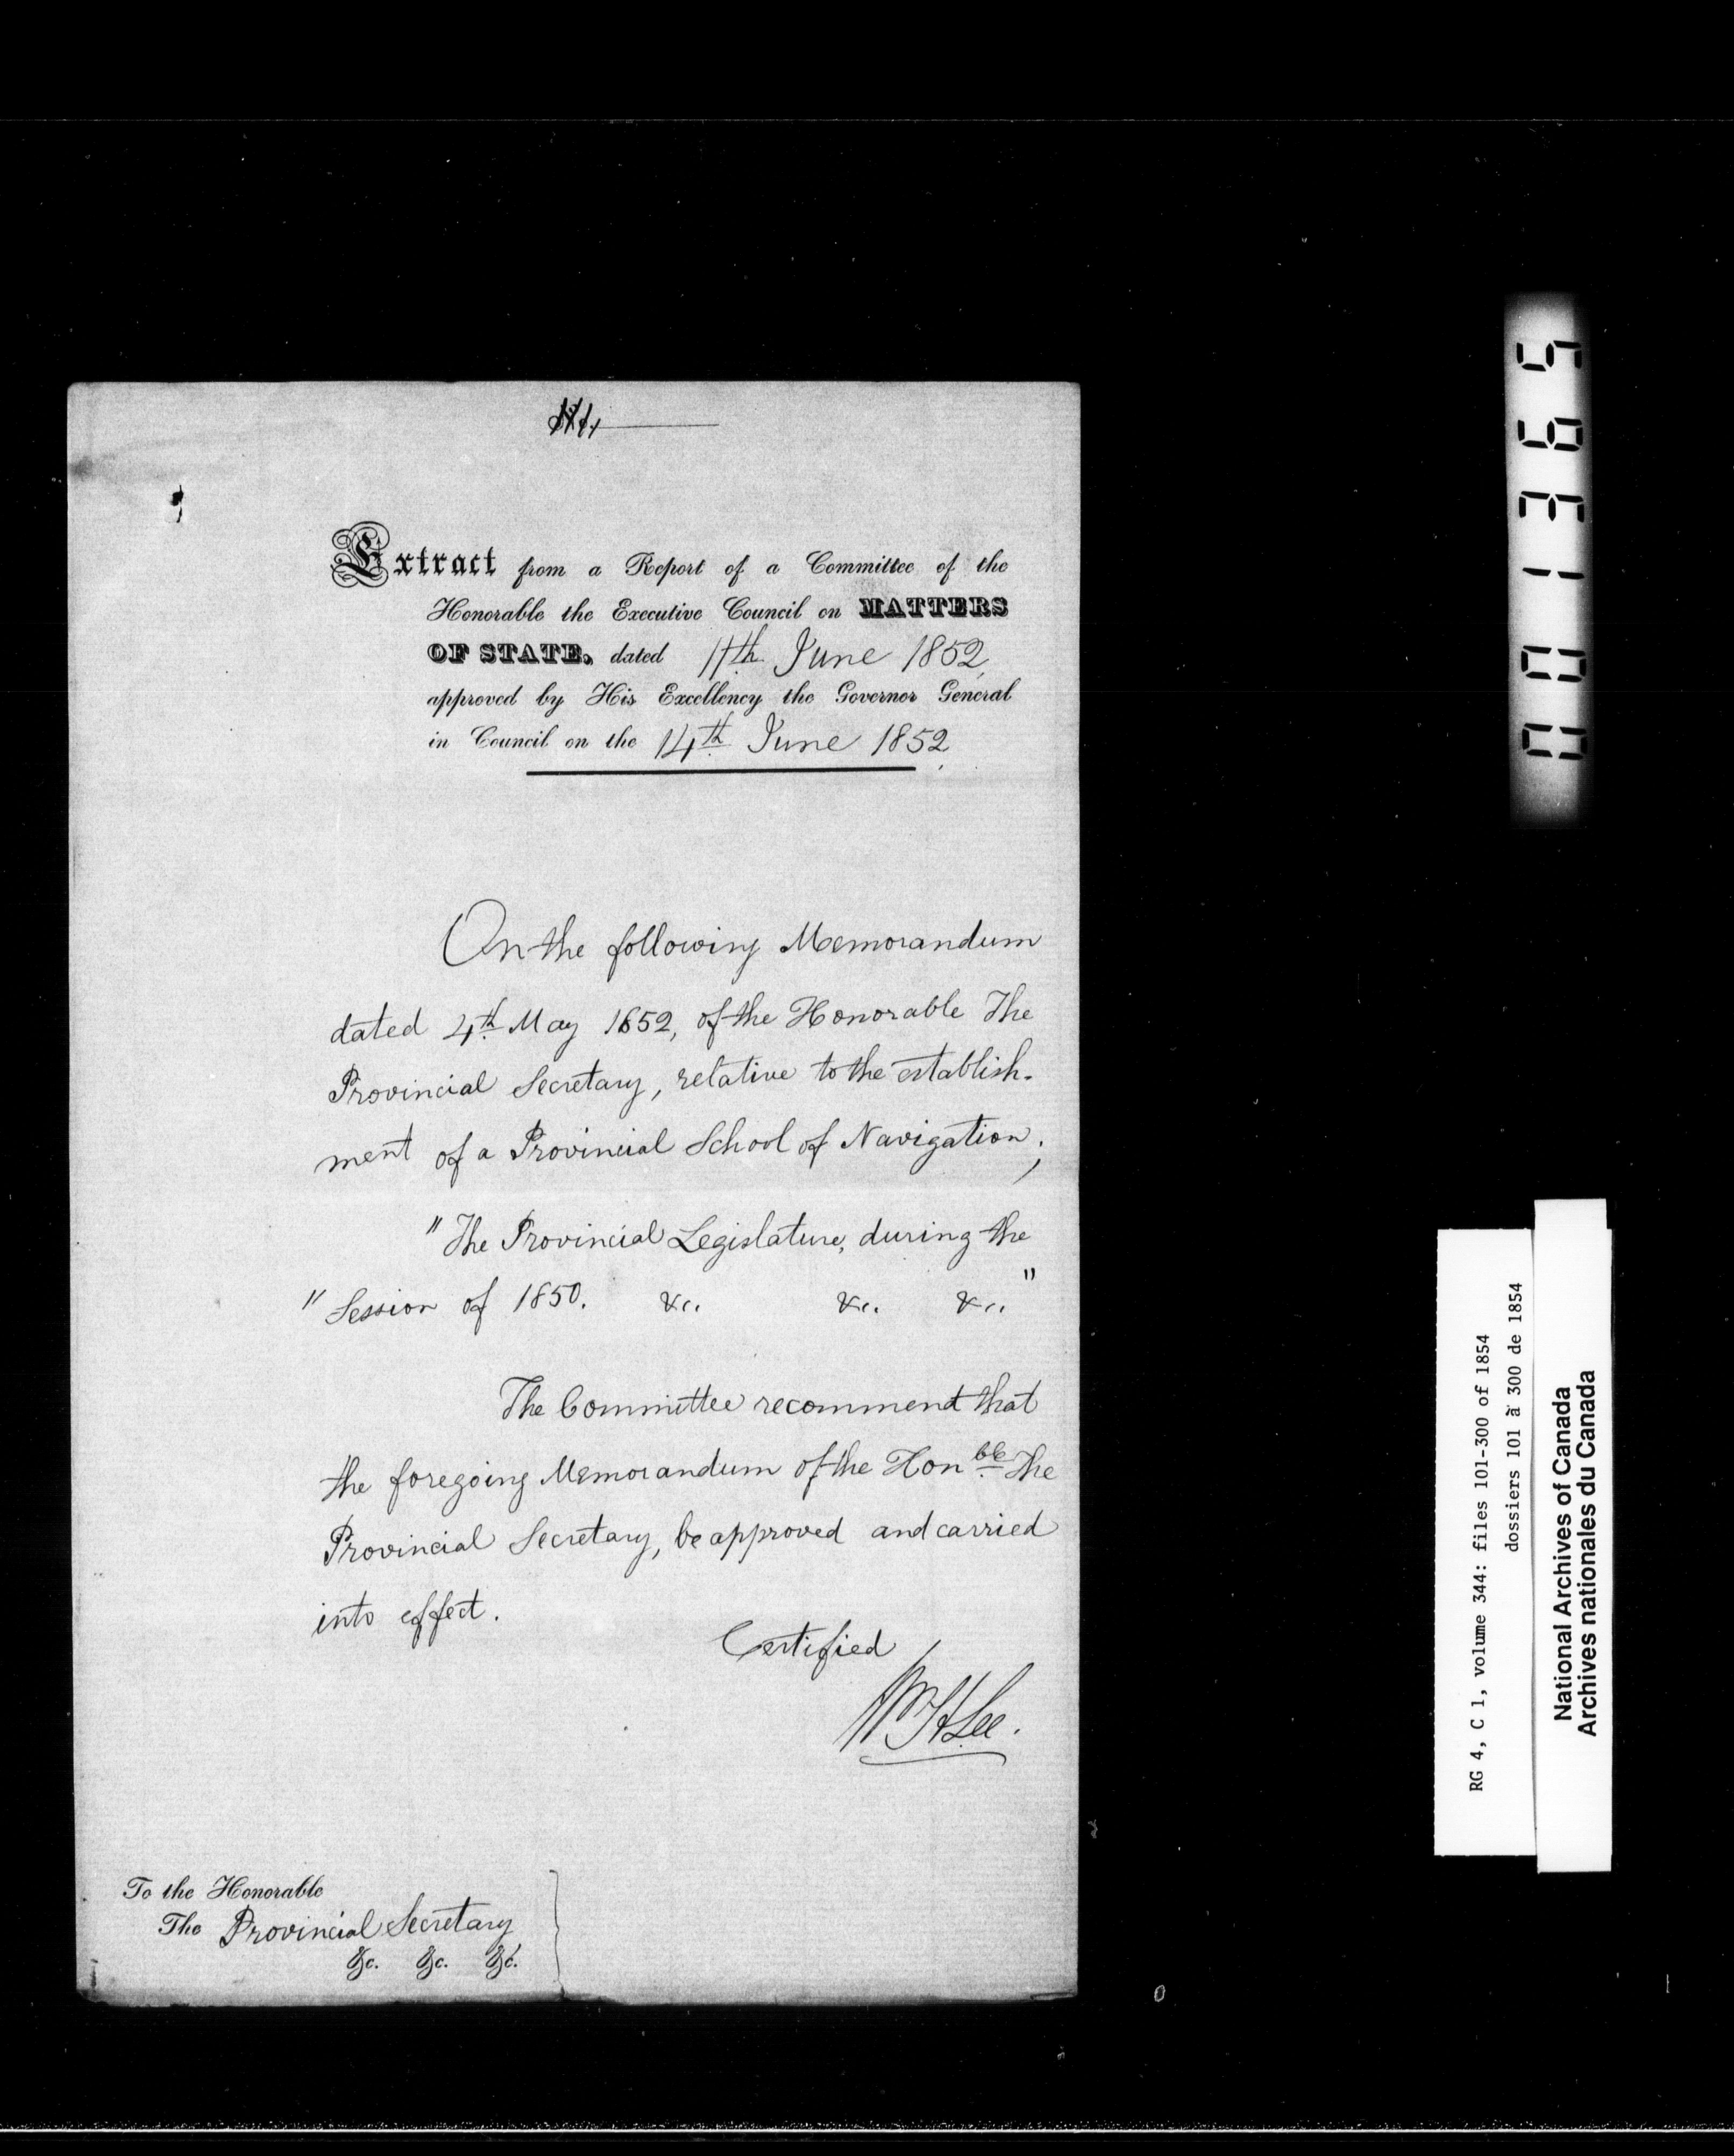 Extract from a Report of a Committee of the
Honorable the Executive Council on MATTERS
OF STATE, dated 11th June 1852
approved by His Excellency the Governor General
in Council on the 14th June 1852.
On the following Memorandum
dated 4th May 1852, of the Honorable The
Provincial Secretary, relative to the establish-
ment of a Provincial School of Navigation;
"The Provincial Legislature, during the
"Session of 1850. &c. &c. &c."
The Committee recommend that
the foregoing Memorandum of the Honble The
Provincial Secretary, be approved and carried
into effect.
Certified
WHLee.
To the Honorable
The Provincial Secretary
&c. &c. &c.
001365
RG 4, C 1, volume 344: files 101-300 of 1854
dossiers 101 à 300 de 1854
National Archives of Canada
Archives nationales du Canada